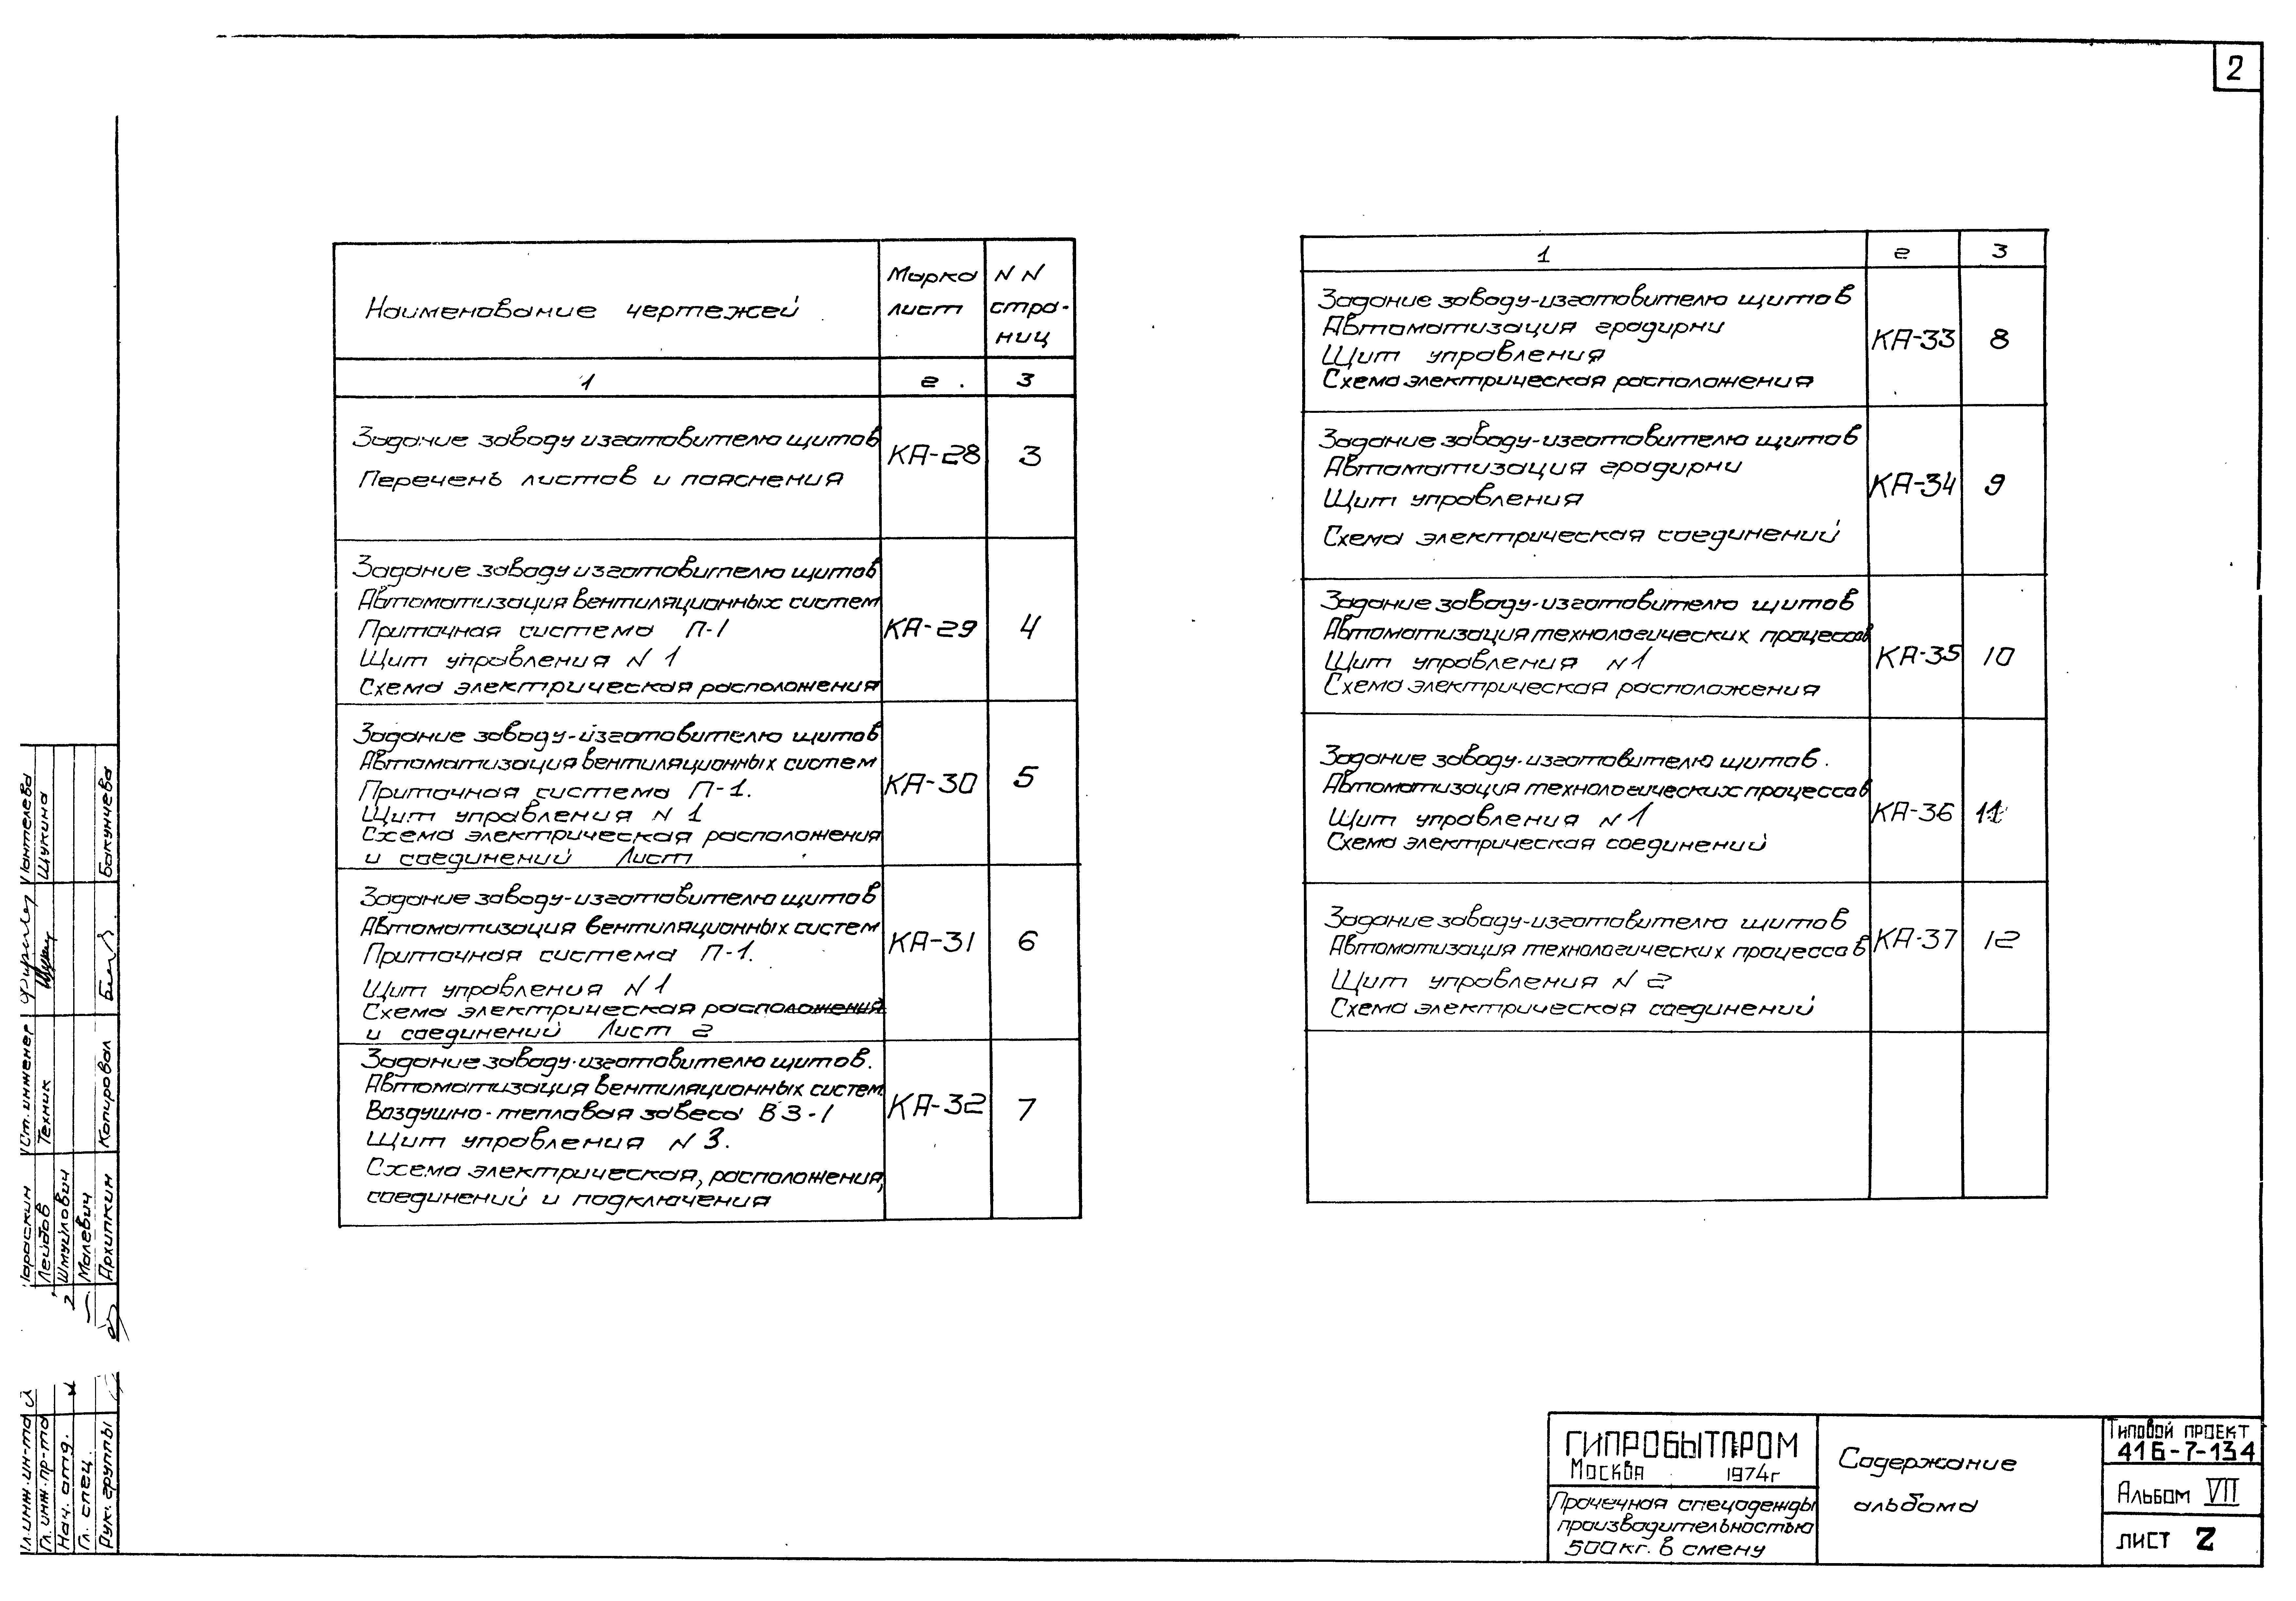 2
Наименование чертежей
Марка лист
NN стра-
ниц
1 2 3
Задание заводу изготовителю щитов
Перечень листов и пояснения
КА-28 3
Задание заводу изготовителю щитов
Автоматизация вентиляционных систем
Приточная система П-1
Щит управления N 1
Схема электрическая расположения
КА-29 4
Задание заводу-изготовителю щитов
Автоматизация вентиляционных систем
Приточная система П-1.
Щит управления N 1
Схема электрическая расположения
и соединений Лист
КА-30 5
Задание заводу-изготовителю щитов
Автоматизация вентиляционных систем
Приточная система П-1.
Щит управления N 1
Схема электрическая расположения
и соединений Лист 2
КА-31 6
Задание заводу-изготовителю щитов.
Автоматизация вентиляционных систем
Воздушно-тепловая завеса ВЗ-1
Щит управления N 3.
Схема электрическая, расположения,
соединений и подключения
КА-32 7
1 2 3
Задание заводу-изготовителю щитов
Автоматизация градирни
Щит управления
Схема электрическая расположения
КА-33 8
Задание заводу-изготовителю щитов
Автоматизация градирни
Щит управления
Схема электрическая соединений
КА-34 9
Задание заводу-изготовителю щитов
Автоматизация технологических процессов
Щит управления N 1
Схема электрическая расположения
КА-35 10
Задание заводу-изготовителю щитов.
Автоматизация технологических процессов
Щит управления N 1
Схема электрическая соединений
КА-36 11
Задание заводу-изготовителю щитов
Автоматизация технологических процессов
Щит управления N 2
Схема электрическая соединений
КА-37 12
Гл. инж. ин-та
Гл. инж. пр-та
Нач. отд.
Гл. спец.
Рук. группы
Лейбов
Шмуйлович
Малевич
Архипкин
Ст. инженер
Техник
Копировал
Пантелеева
Щукина
Бакунчева
ГИПРОБЫТПРОМ
Москва 1974г
Прачечная спецодежды
производительностью
500кг. в смену
Содержание
альбома
Типовой проект
416-7-134
Альбом VII
лист 2